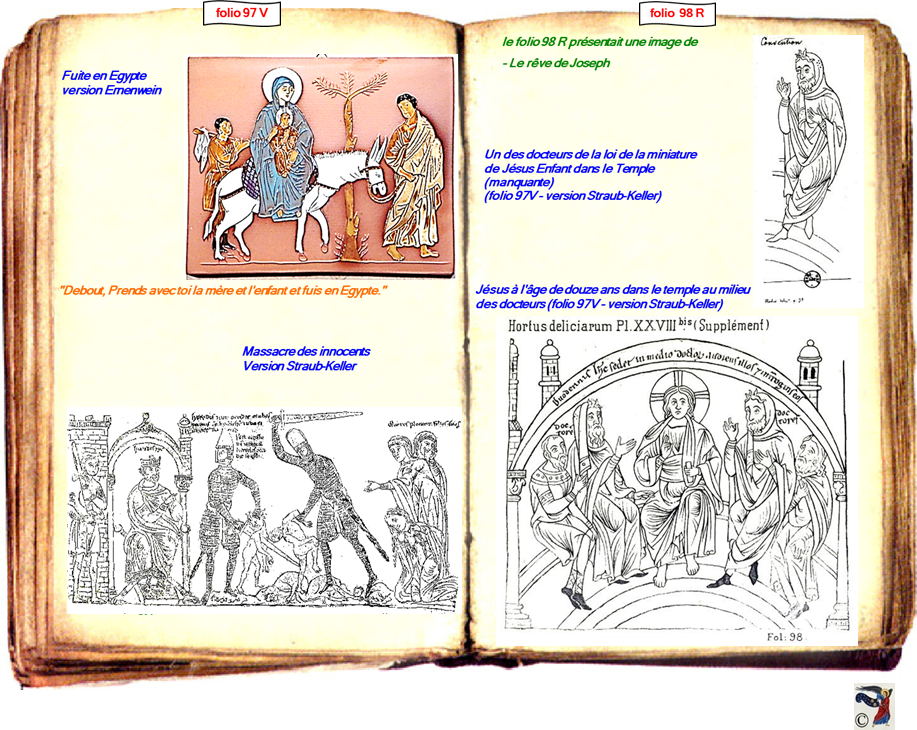 folio 97 V
Fuite en Egypte
version Ernenwein
"Debout, Prends avec toi la mère et l'enfant et fuis en Egypte."
Massacre des innocents
Version Straub-Keller
folio 98 R
le folio 98 R présentait une image de
- Le rêve de Joseph
Un des docteurs de la loi de la miniature
de Jésus Enfant dans le Temple
(manquante)
(folio 97V - version Straub-Keller)
Jésus à l'âge de douze ans dans le temple au milieu
des docteurs (folio 97V - version Straub-Keller)
Hortus deliciarum Pl. XXVIII bis (Supplément)
doc
tores
doc
tores
Fol: 98
©